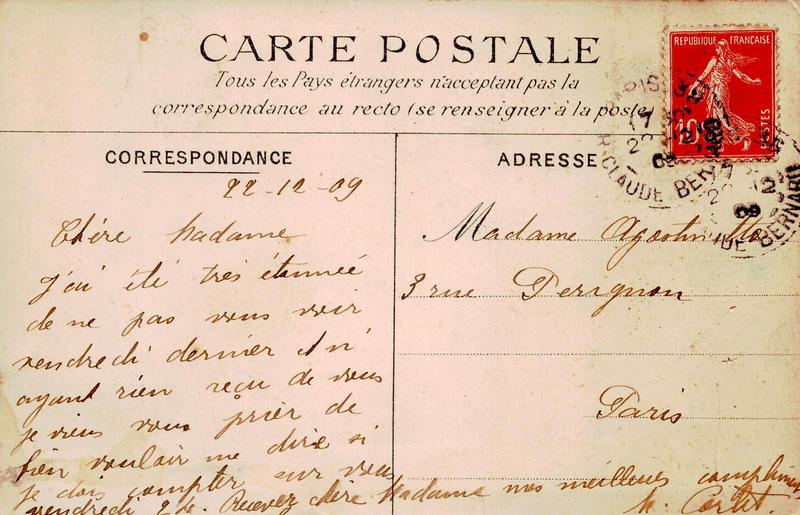 CARTE POSTALE
Tous les Pays étrangers n'acceptent pas la
correspondance au recto (se renseigner à la poste)
REPUBLIQUE FRANÇAISE
10
POSTES
PARIS
17
R. CLAUDE BERNARD
CORRESPONDANCE
ADRESSE
22-12-09
Chère Madame
J'ai été très étonnée
de ne pas vous voir
vendredi dernier et n'
ayant rien reçu de vous
je viens vous prier de
bien vouloir me dire si
je dois compter sur vous
vendredi 24. Recevez chère Madame mes meilleurs compliments
Madame
3 rue Perignon
Paris